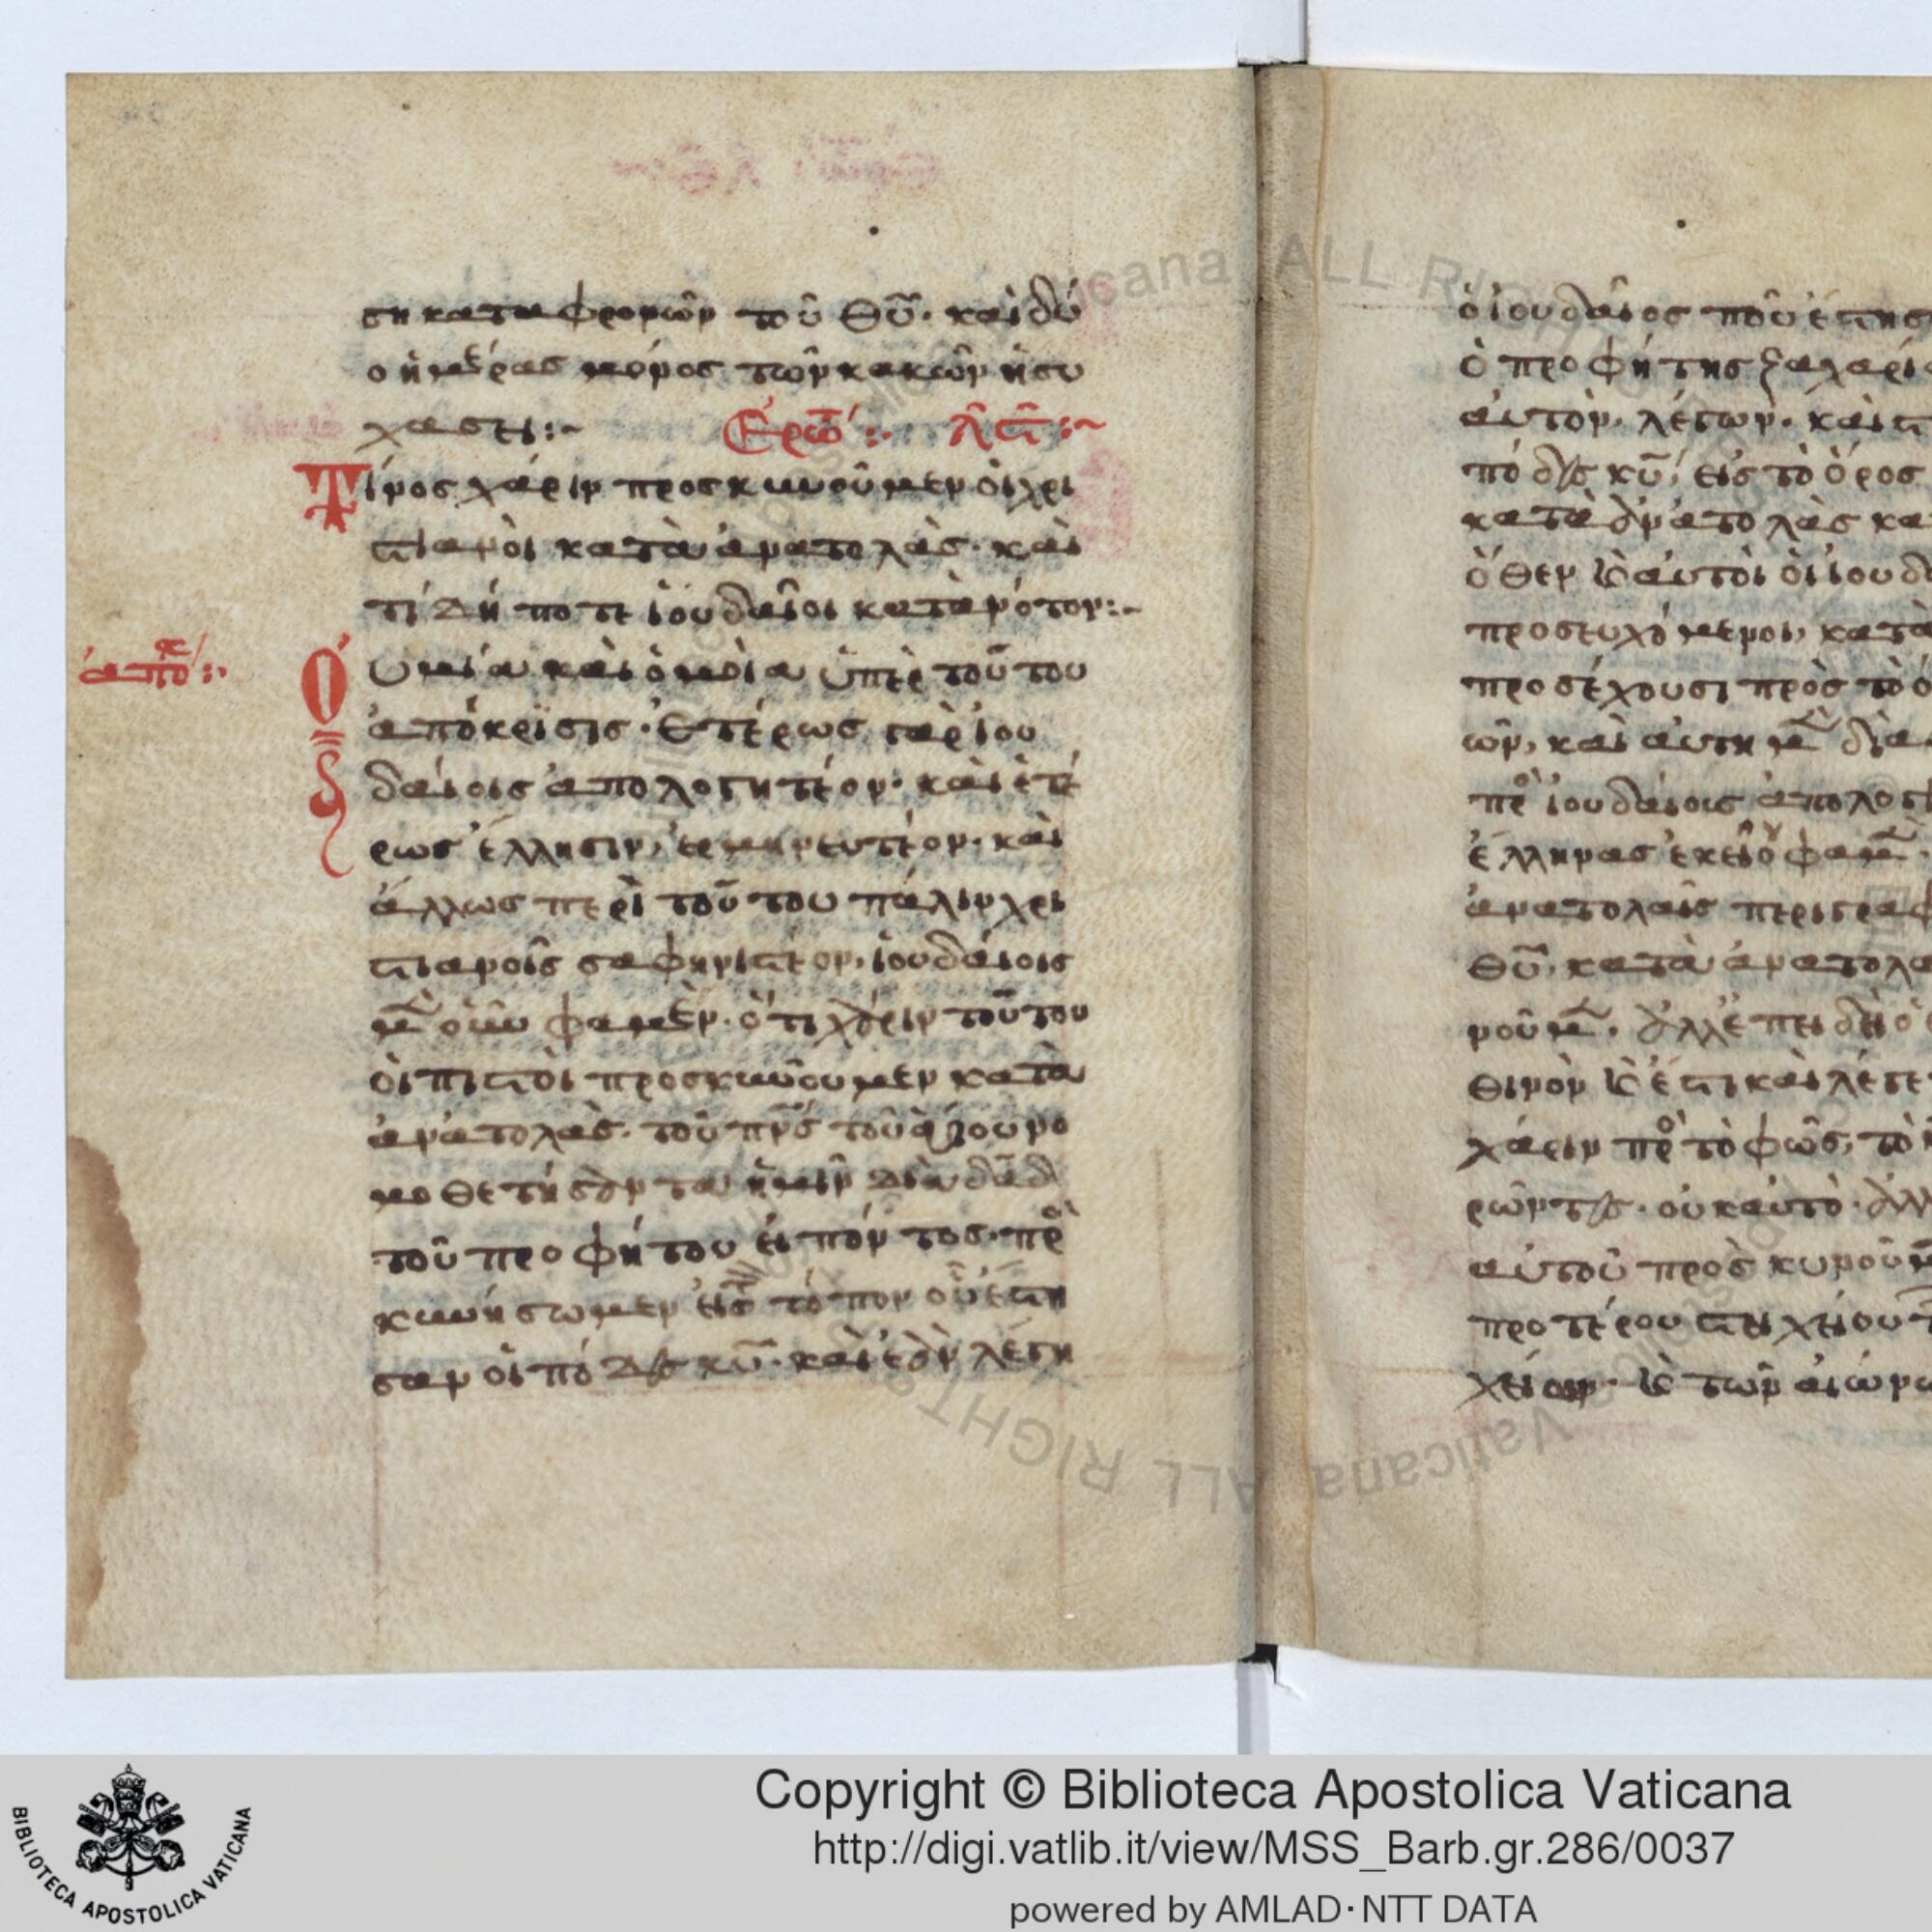 ση καταφρονῶν τοῦ θῦ. καὶ δύ
ο ἡμέρας μόνος τῶν κακῶν ἡσυ
χάσει:~ Ἐρώ:· λϛ:~
Τίνος χάριν προσκυνοῦμεν οἱ χρι
στιανοὶ κατὰ ἀνατολὰς· καὶ
τί δή ποτε ἰουδαῖοι κατὰ νότον:~
ἀπό:·
Οὐ μία καὶ ὁμοία ὑπὲρ τούτου
ἀπόκρισις· ἑτέρως γὰρ ἰου
δαίοις ἀπολογητέον· καὶ ἑτέ
ρως ἕλλησιν, ἑρμηνευτέον· καὶ
ἄλλως περὶ τούτου πάλιν χρι
στιανοῖς σαφηνιστέον, ἰουδαίοις
μὲν οὖν φαμὲν· ὅτι χάριν τούτου
οἱ πιστοὶ προσκυνοῦμεν κατὰ
ἀνατολὰς· τοῦ πνς τοῦ ἁγίου νο
μοθετήσαντα ἡμῖν διὰ δαδ
τοῦ προφήτου εἰπόντος· προ
κυνήσωμεν εἰς τόπον οὗ ἔστη
σαν οἱ πόδες κυ· καὶ ἐὰν λέγη
ὁ ἰουδαῖος ποῦ ἔστησ
ὁ προφήτης ζαχαρί
αὐτὸν, λέγων· καὶ σ
πόδες κυ, εἰς τὸ ὄρος
κατὰ ἀνατολὰς κα
ὅθεν καὶ αὐτοὶ οἱ ἰουδ
προσευχόμενοι, κατὰ
προσέχουσι πρὸς τὸ ὄ
ῶν, καὶ αὕτη μὲν διὰ
πρὸς ἰουδαίους ἀπολογ
ἕλληνας ἐκεῖνο φαμὲν·
ἀνατολαῖς περιγραφ
θῦ, κατὰ ἀνατολὰ
νοῦμεν. ἀλλ' ἐπειδὴ ὁ
θινὸν καὶ ἔστι καὶ λέγε
χάριν πρὸς τὸ φῶς, τὸ
ρῶντες· οὐκ αὐτὸ· ἀλλ
αὐτοῦ προσκυνοῦμ
προτέρου στειχείου τ
χείων· καὶ τῶν αἰώνω
Copyright © Biblioteca Apostolica Vaticana
http://digi.vatlib.it/view/MSS_Barb.gr.286/0037
powered by AMLAD·NTT DATA
BIBLIOTECA APOSTOLICA VATICANA